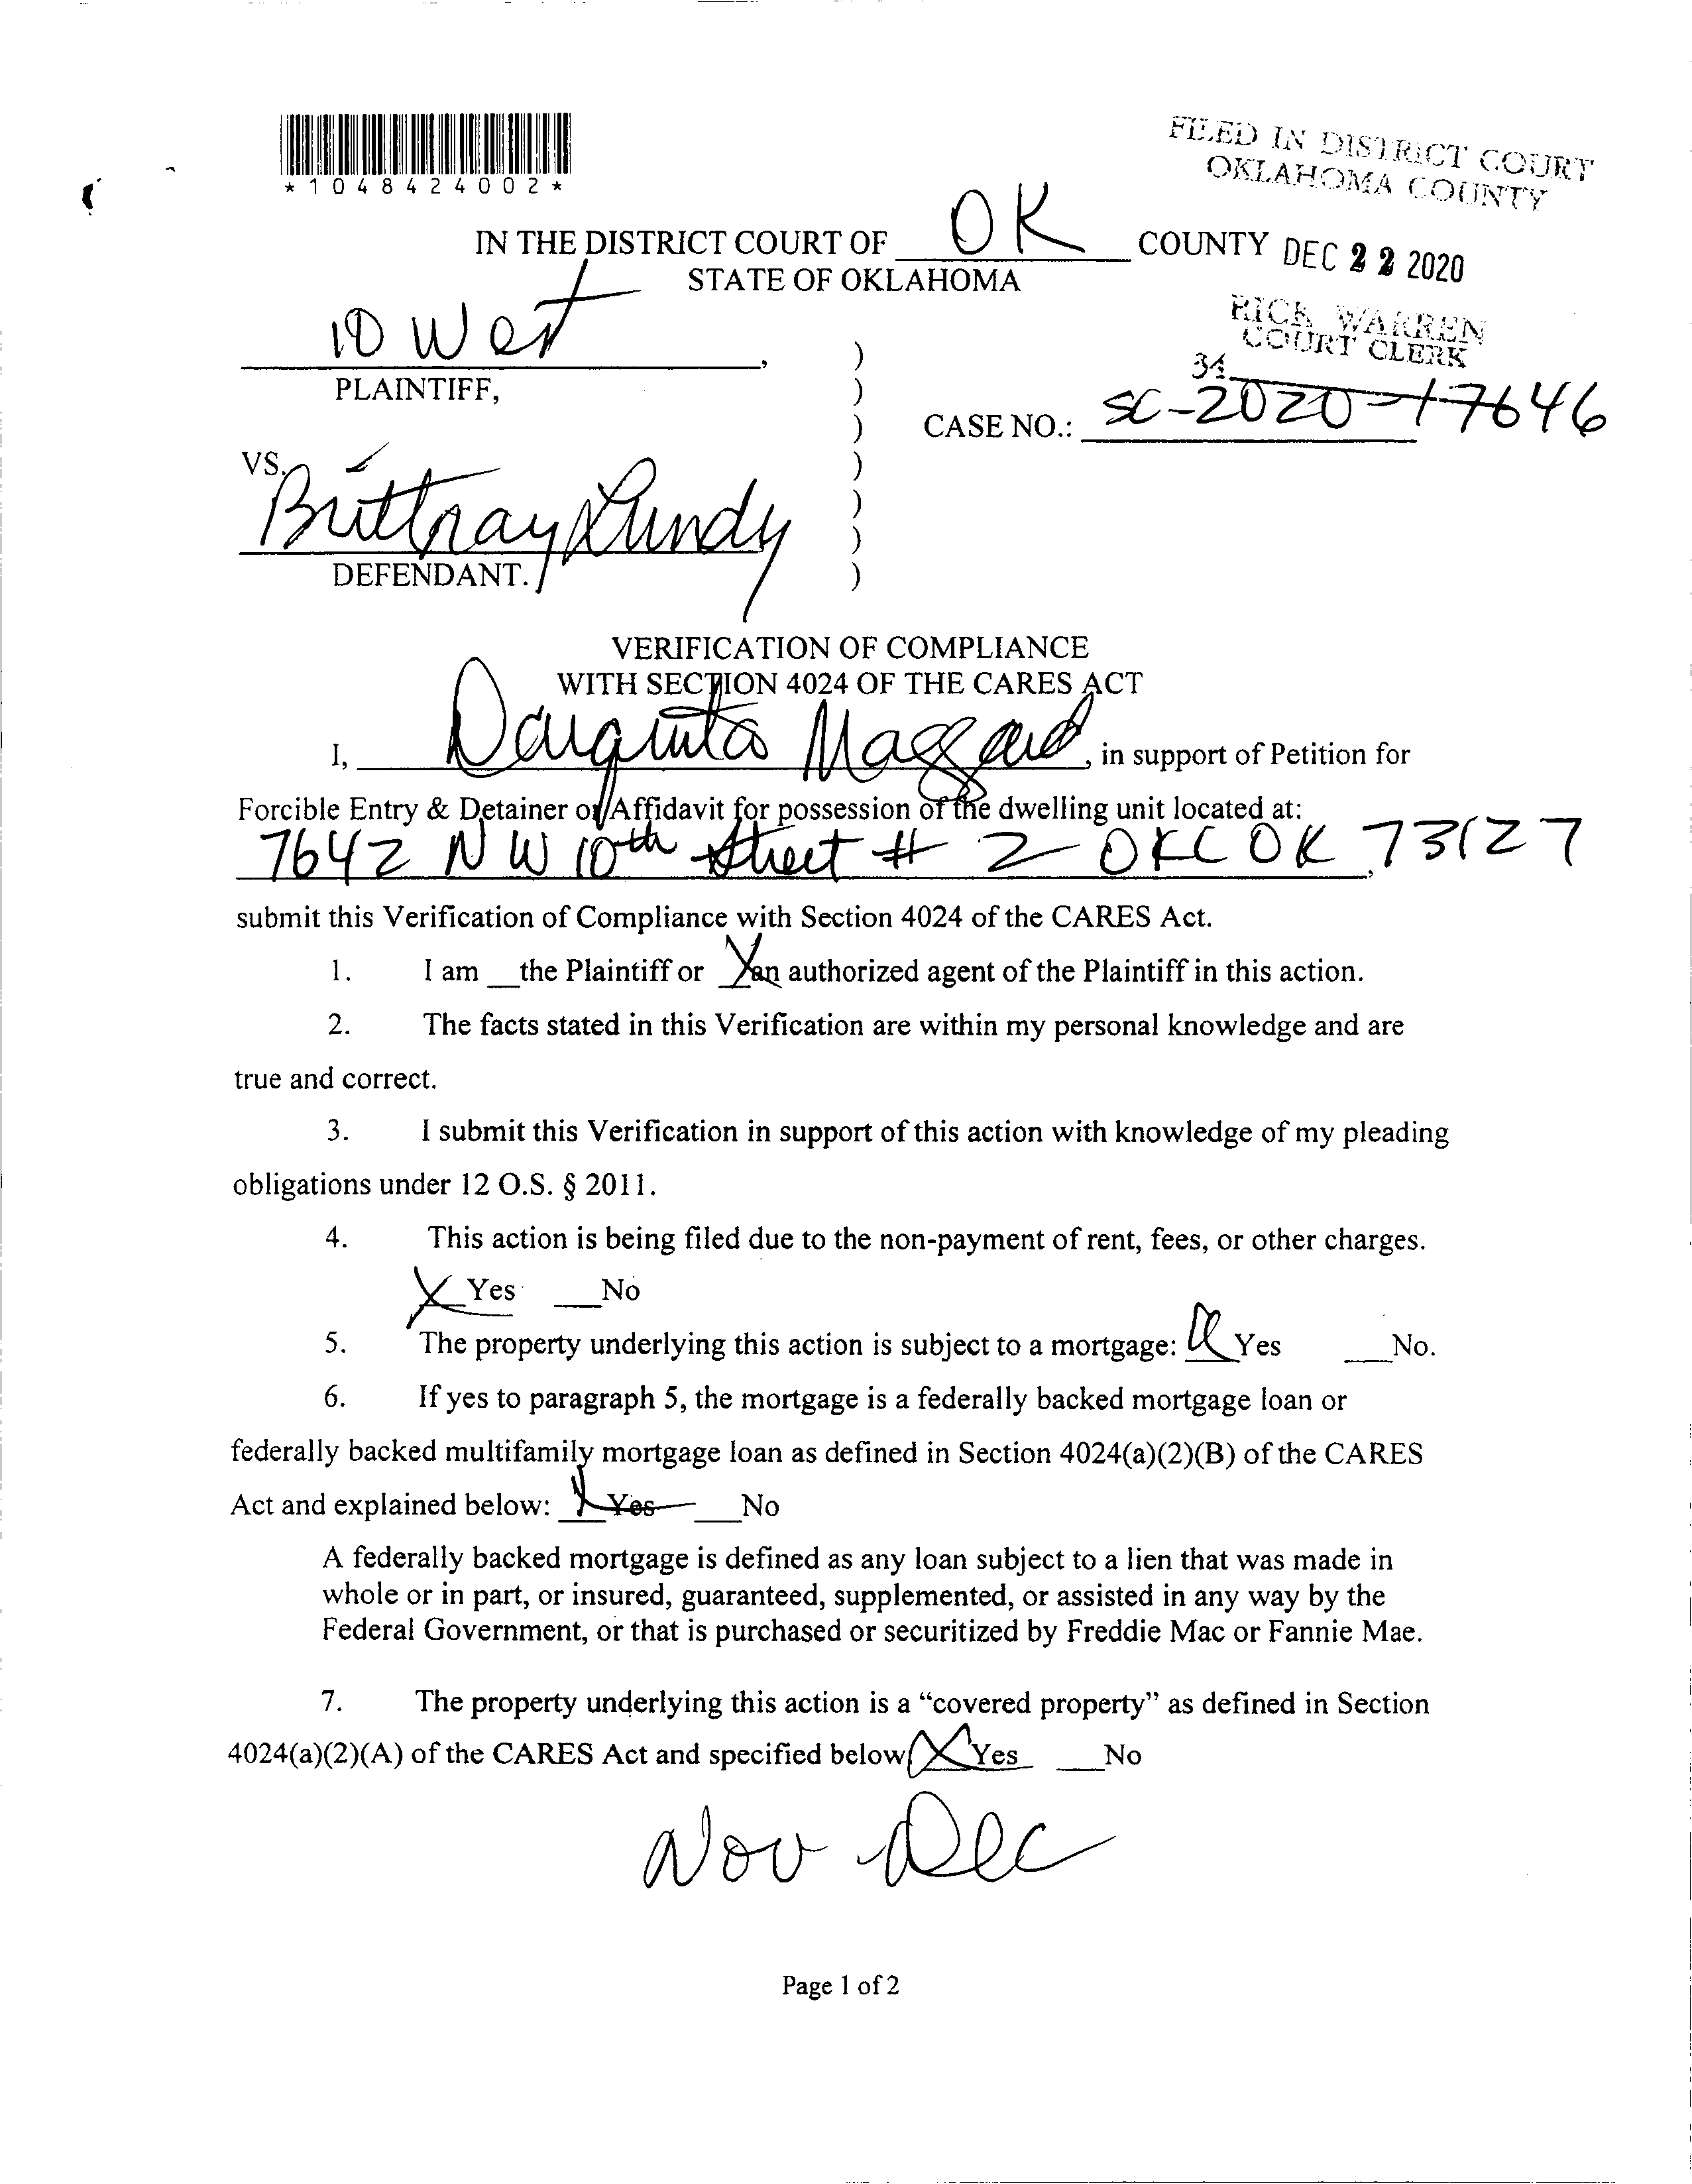 *1048424002*
FILED IN DISTRICT COURT
OKLAHOMA COUNTY
IN THE DISTRICT COURT OF OK COUNTY
DEC 22 2020
STATE OF OKLAHOMA
RICK WARREN
COURT CLERK
34
10 West,
PLAINTIFF,
CASE NO.: SC-2020-17646
VS.
Brittnay Lundy
DEFENDANT.
)
)
)
)
)
)
)
VERIFICATION OF COMPLIANCE
WITH SECTION 4024 OF THE CARES ACT
I, Maggard, in support of Petition for
Forcible Entry & Detainer or Affidavit for possession of the dwelling unit located at:
7642 NW 10th Street # 2 OKC OK 73127,
submit this Verification of Compliance with Section 4024 of the CARES Act.
1. I am __the Plaintiff or X an authorized agent of the Plaintiff in this action.
2. The facts stated in this Verification are within my personal knowledge and are
true and correct.
3. I submit this Verification in support of this action with knowledge of my pleading
obligations under 12 O.S. § 2011.
4. This action is being filed due to the non-payment of rent, fees, or other charges.
X Yes ___No
5. The property underlying this action is subject to a mortgage: Yes ___No.
6. If yes to paragraph 5, the mortgage is a federally backed mortgage loan or
federally backed multifamily mortgage loan as defined in Section 4024(a)(2)(B) of the CARES
Act and explained below: X Yes ___No
A federally backed mortgage is defined as any loan subject to a lien that was made in
whole or in part, or insured, guaranteed, supplemented, or assisted in any way by the
Federal Government, or that is purchased or securitized by Freddie Mac or Fannie Mae.
7. The property underlying this action is a “covered property” as defined in Section
4024(a)(2)(A) of the CARES Act and specified below X Yes ___No
Nov Dec
Page 1 of 2